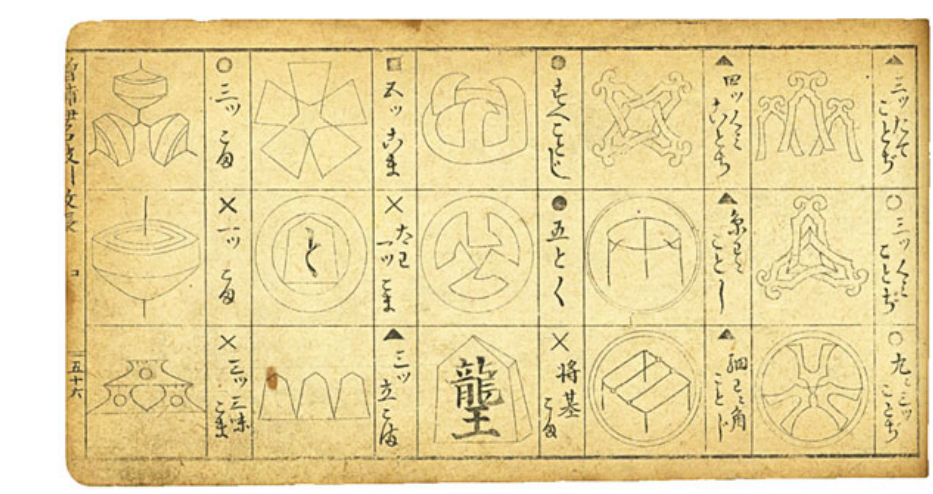 三ツたて
ことぢ
三ツくミ
ことぢ
丸ニ三ツ
ことぢ
四ツくミ
ことぢ
糸わ
ことじ
細わニ角
ことじ
すへことじ
五とく
将棊
こま
龍王
五ツこま
太わ
一ツこま
と
三ツ
立こま
三ツこま
一ツこま
三ツ三味
こま
五十六